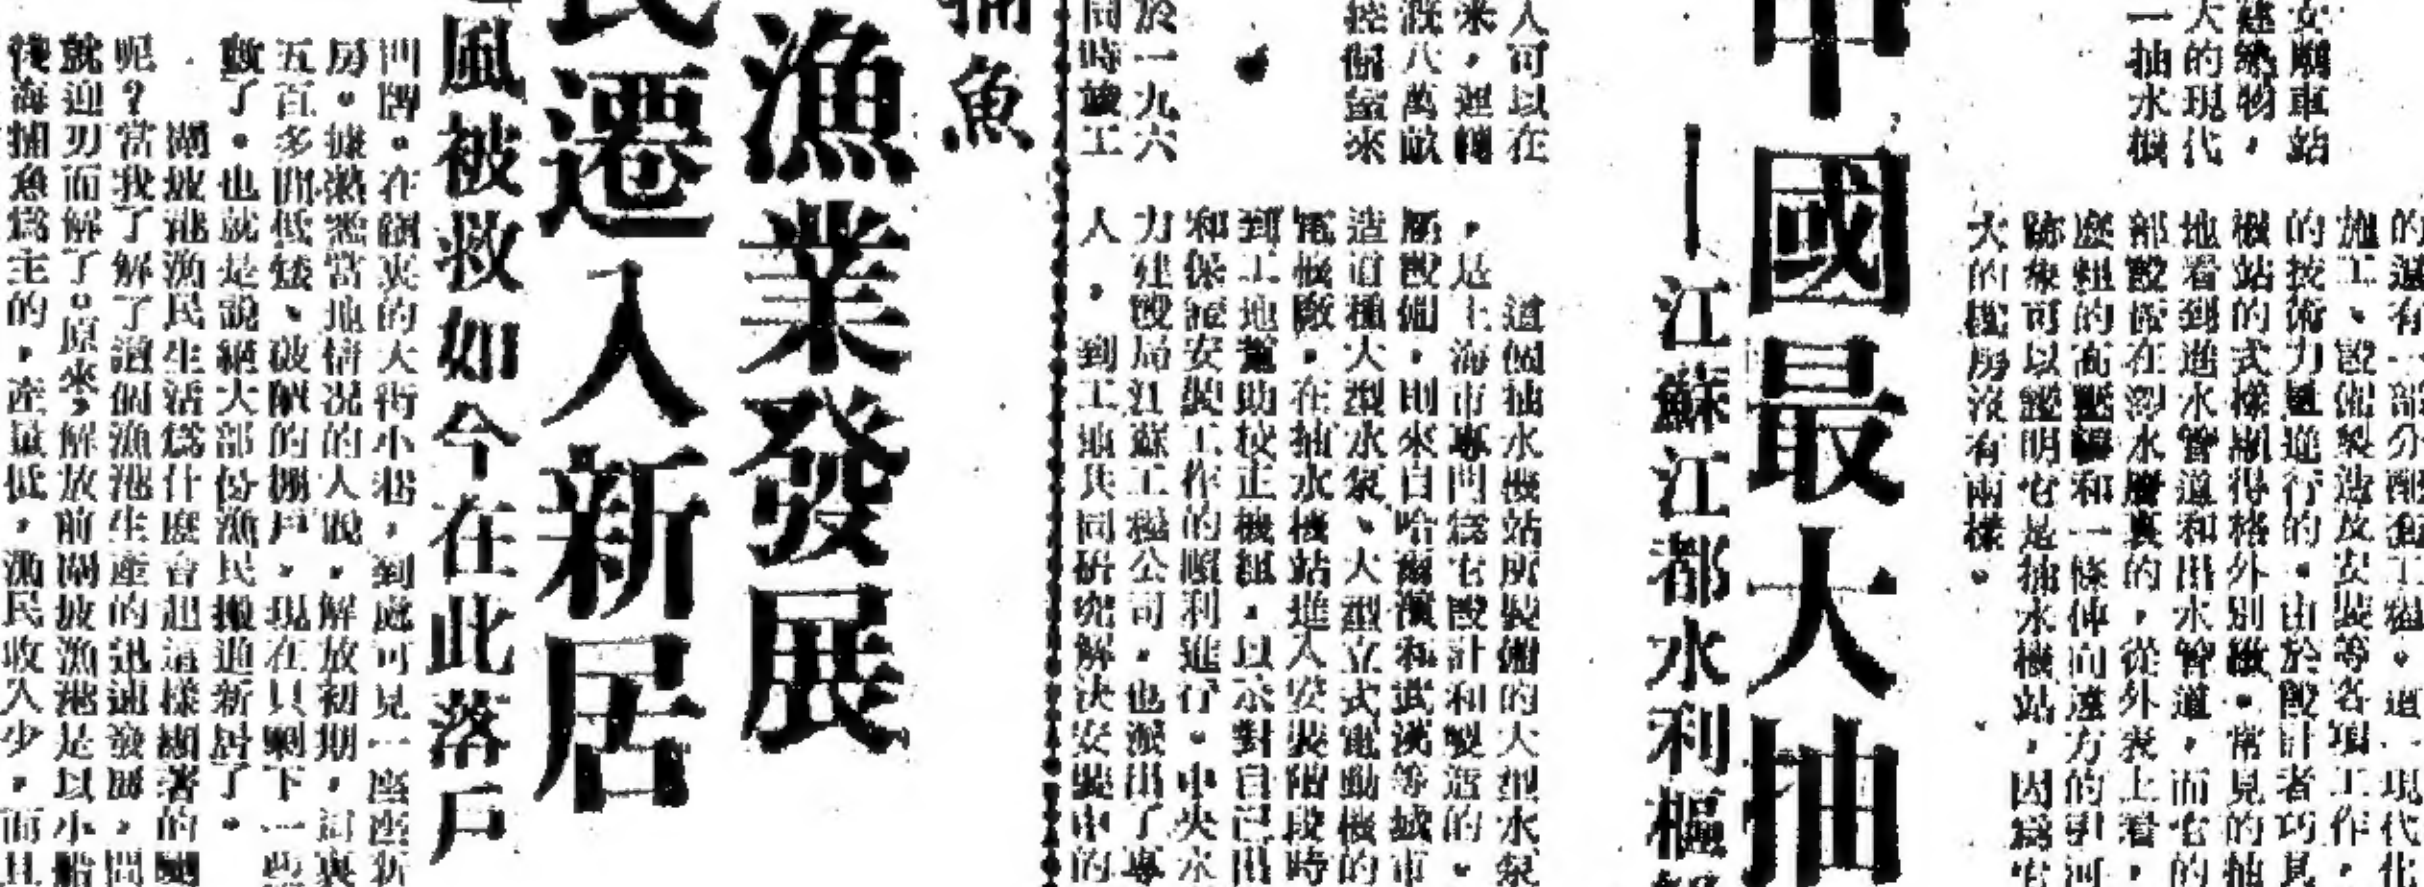 的還有一部分配套工程。這一現代化
施工、設備製造及安裝等各項工作,
的技術力量進行的。由於設計者巧具
機站的式樣顯得格外別緻。常見的抽
地看到進水管道和出水管道,而它的
部設備在
的高壓線和一條伸向遠方的引河
跡象可以證明它是抽水機站,因爲它
大的機房沒有兩樣。
車站
建築物,
大的現代
一抽水機
中國最大抽
—江蘇江都水利樞
人可以在
來,運轉
溉八萬畝
控制室來
這個抽水機站所裝備的大型水泵
,是上海市專門爲它設計和製造的。
壓設備,則來自哈爾濱和武漢等城市
造這種大型水泵、大型立式電動機的
電機廠,在抽水機站進入安裝階段時
到工地幫助校正機組,以示對自己出
和保證安裝工作的順利進行。中央水
力建設局江蘇工程公司,也派出了專
人,到工地共同研究解決安裝中的
於一九六
同時竣工
捕魚
漁業發展
民遷入新居
風被救如今在此落戶
門牌。在鎭裏的大街小巷,到處可見一座座新
房。據熟悉當地情況的人說,解放初期,這裏
五百多間低矮、破陋的棚戶,現在只剩下一些
數了。也就是說絕大部份漁民搬進新居了。
湖坡港漁民生活爲什麽會起這樣顯著的變
呢?當我了解了這個漁港生產的迅速發展,問
就迎刃而解了。原來,解放前閘坡漁港是以小船
淺海捕魚爲主的,產量低,漁民收入少,而且